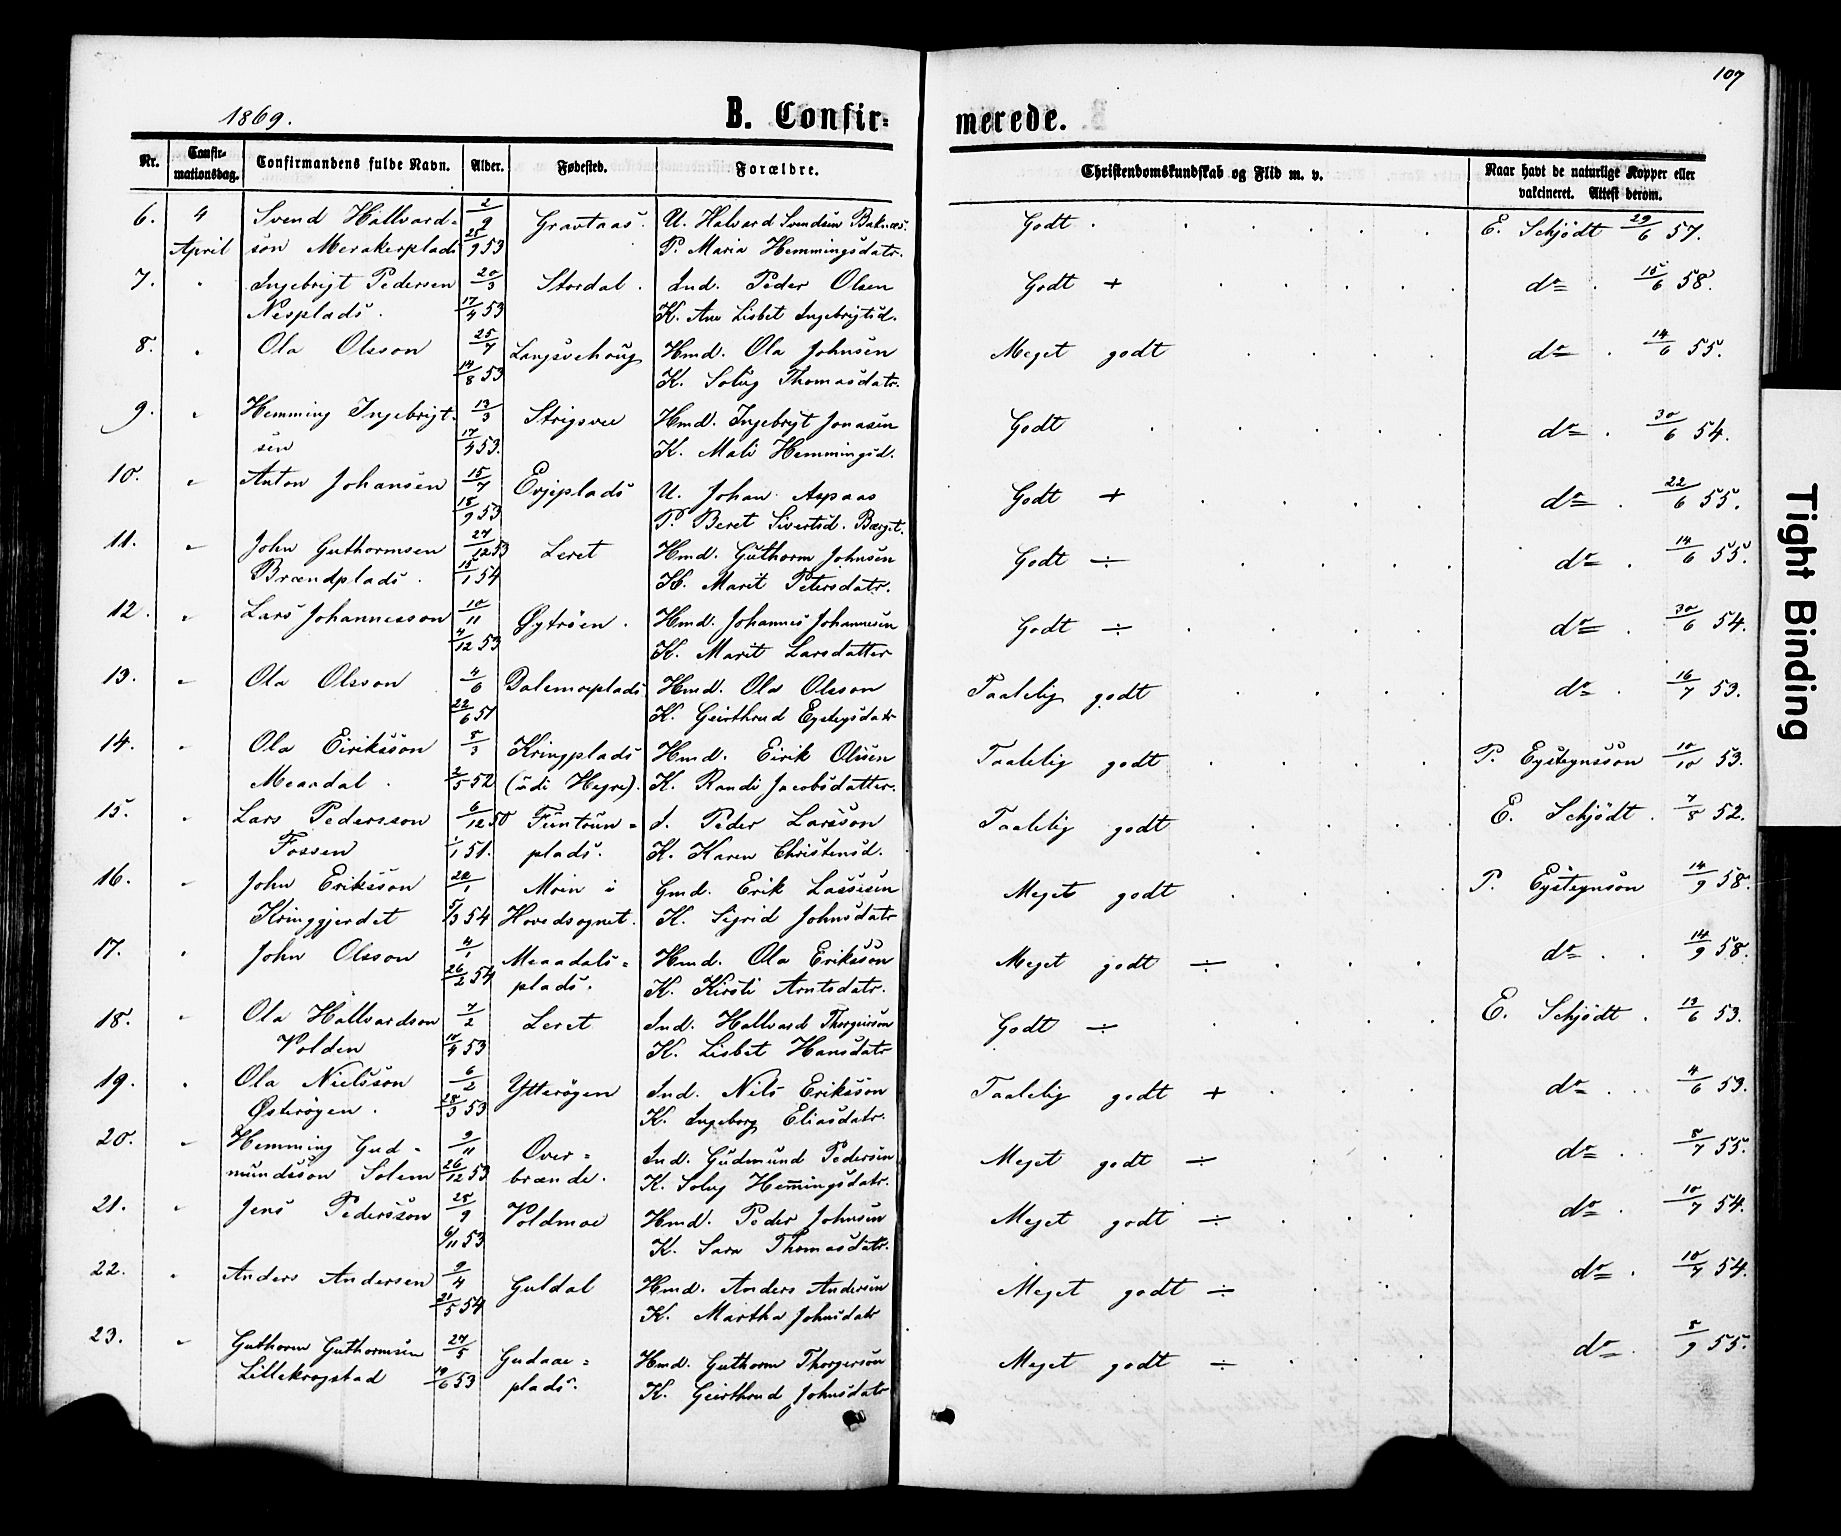 107
1869.
B. Confir- merede.
Nr. Confir-mationsdag. Confirmandens fulde Navn. Alder. Fødested. Forældre. Christendomskundskab og Flid m. v. Naar havt de naturlige Kopper eller vakcineret. Attest derom.
6. 4 Svend Hallvard- 2/9 Gravtaas. U. Halvard Svendsen Baknæs. Godt. E. Schjödt 29/6 57.
April søn Merakerplads 25/9 53 P. Maria Hemmingsdatr.
7. " Ingebrigt Pedersen 20/3 Stordal. Ind. Peder Olsen Godt + do 15/6 58.
Nesplads. 17/4 53 K. Ane Lisbet Ingebrigtsd.
8. " Ola Olsson 25/7 Langsvehoug Hmd. Ola Johnsen Meget godt do 14/6 55.
14/8 53 K. Solug Thomasdatr.
9. " Hemming Ingebrigt- 13/3 Strigsvee Hmd. Ingebrigt Jonasen Godt do 30/6 54.
sen 17/4 53. K. Mali Hemmingsd.
10. " Anton Johansen 15/7 Evjeplads U. Johan Aspaas Godt + do 22/6 55.
18/9 53 P. Beret Sivertsd. Barget.
11. " John Guthormsen 27/12 53 Leret Hmd. Guthorm Johnsen Godt ÷ do 14/6 55.
Brændplads. 15/1 54 K. Marit Petersdatr.
12. " Lars Johannesson 10/11 Øytrøen. Hmd. Johannes Johannesen Godt ÷ do 30/6 54.
4/12 53 K. Marit Larsdatter
13. " Ola Olsson 4/6 Dalemoeplads Hmd. Ola Olsson Taalelig godt do 16/7 53.
22/6 51 K. Geirthrud Eysteysdatr
14. " Ola Eiriksson 8/3 Kringplads Hmd. Eirik Olsen Taalelig godt P. Eysteynsson 10/10 53.
Meaadal. 2/5 52 (udi Hegre). K. Randi Jacobsdatter.
15. " Lars Pedersson 6/12 50 Funtaun- d. Peder Larsson Taalelig godt E. Schjödt. 7/8 52.
Fossen 1/1 51. plads. K. Karen Christensd.
16. " John Eriksson 20/1 Moen i Gmd. Erik Lassesen Meget godt P. Eysteynson 14/9 58.
Kringgjerdet 5/3 54 Hovedsognet. K. Sigrid Johnsdatr
17. " John Olsson 4/1 Meaadals- Hmd. Ola Eriksson Meget godt ÷ do 14/9 58.
26/2 54 plads. K. Kirsti Arntsdatr.
18. " Ola Hallvardson 7/2 Leret Ind. Hallvard Thorgeirson Godt ÷ E. Schjödt. 13/6 53.
Volden 10/4 53 K. Lisbet Hansdatr
19. " Ola Nielsson 6/2 Ytterøgen Ind. Nils Eriksson Taalelig godt + do 4/6 53.
Østerøgen. 28/3 53 K. Ingeborg Eliasdatr.
20. " Hemming Gud- 9/11 Over- Ind. Gudmund Pedersen Meget godt ÷ do 8/7 55.
mundsson Solem 26/12 53 brænde. K. Solug Hemingsdatr.
21. " Jens Pedersson 25/9 Voldmoe Hmd. Peder Johnsen Meget godt ÷ do 10/7 54.
6/11 53 K. Sara Thomasdatr.
22. " Anders Andersen 9/4 Guldal Hmd. Anders Andersen Meget godt ÷ do 10/7 54.
21/5 54 K. Martha Johnsdatr
23. " Guthorm Guthormsen 27/5 Gudaae- Hmd. Guthorm Thorgersøn Meget godt ÷ do 8/9 55.
Lillekrogstad 19/6 53 plads. K. Geirthrud Johnsdatr
Tight Binding